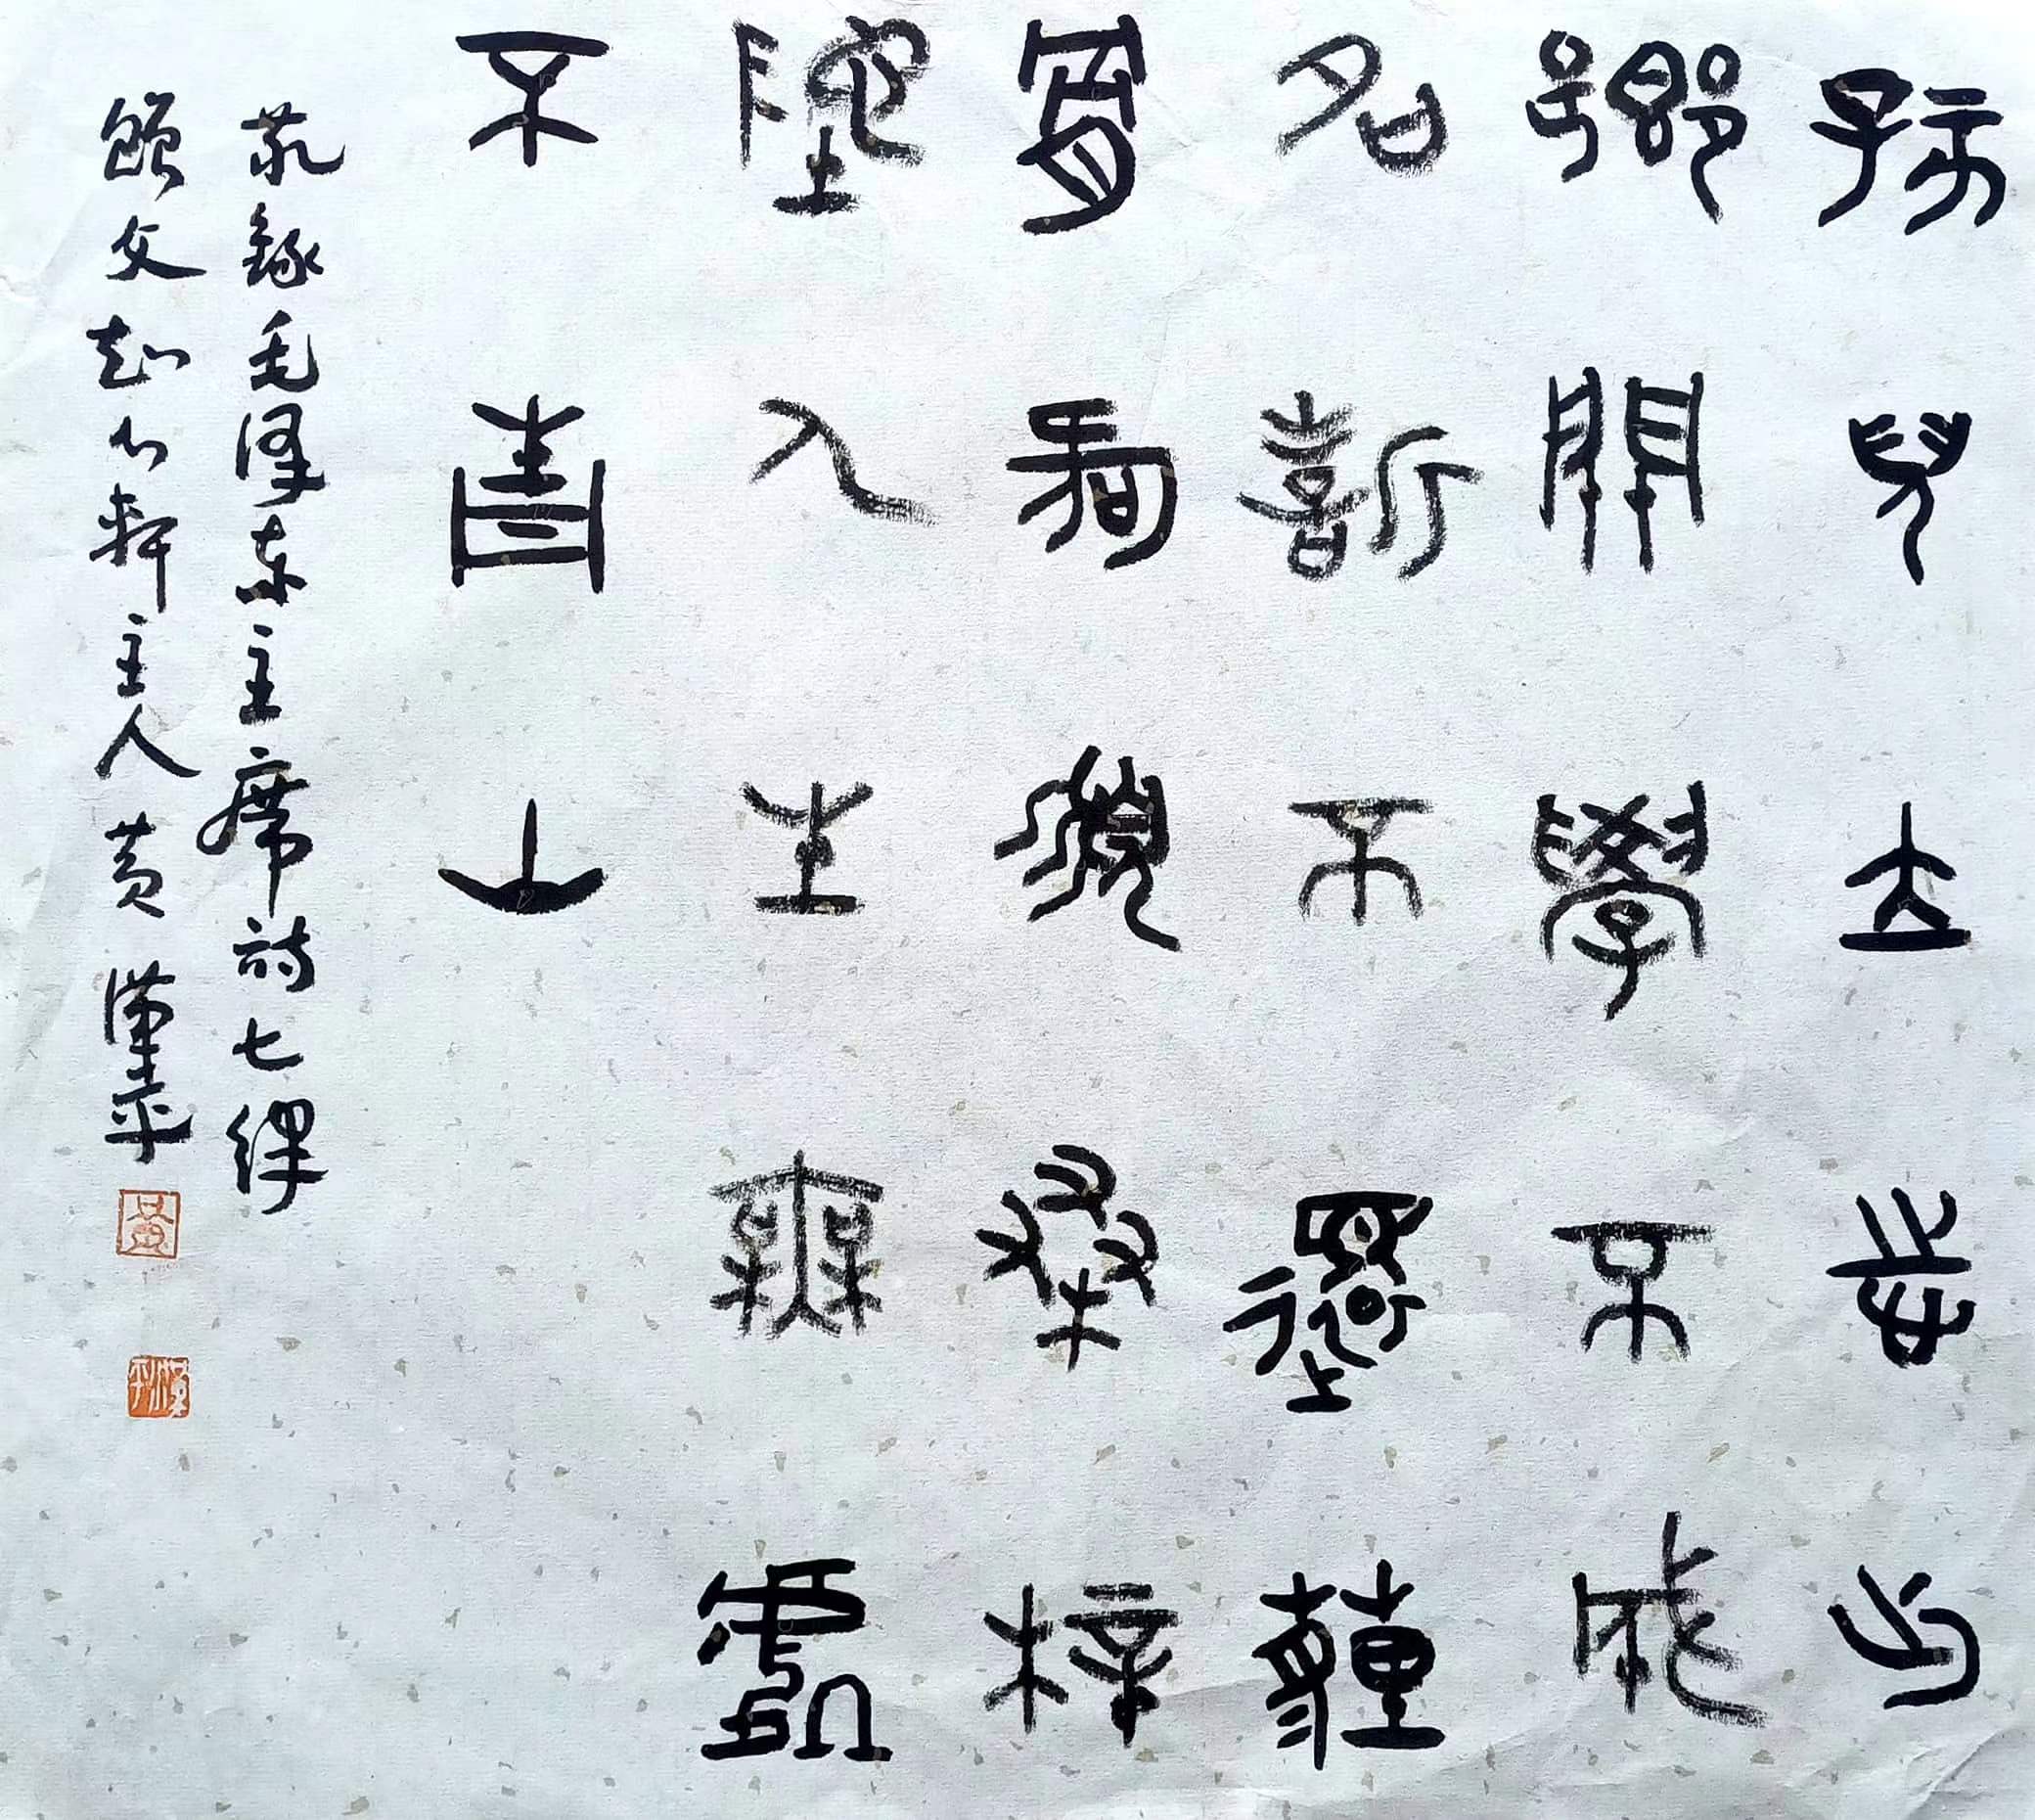 孩兒立志出
鄉關學不成
名誓不還埋
骨何須桑梓
地人生無處
不青山
敬錄毛澤東主席詩七
文知心軒主人黃漢平
黃
漢平